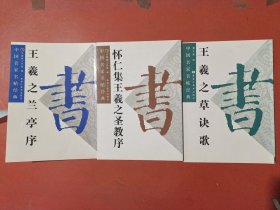 中国名家名帖经典
王羲之兰亭序
書
中国名家名帖经典
怀仁集王羲之圣教序
書
中国名家名帖经典
王羲之草诀歌
書